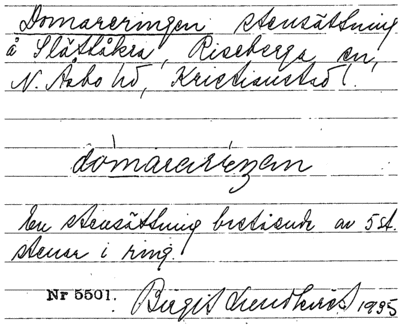 Domareringen stensättning
å Slättåkra, Riseberga sn,
N. Åsbo hd, Kristianstad l.
dómararìŋən
En stensättning bestående av 5 st.
stenar i ring.
Nr 5501. Birgit Lundkvist 1935